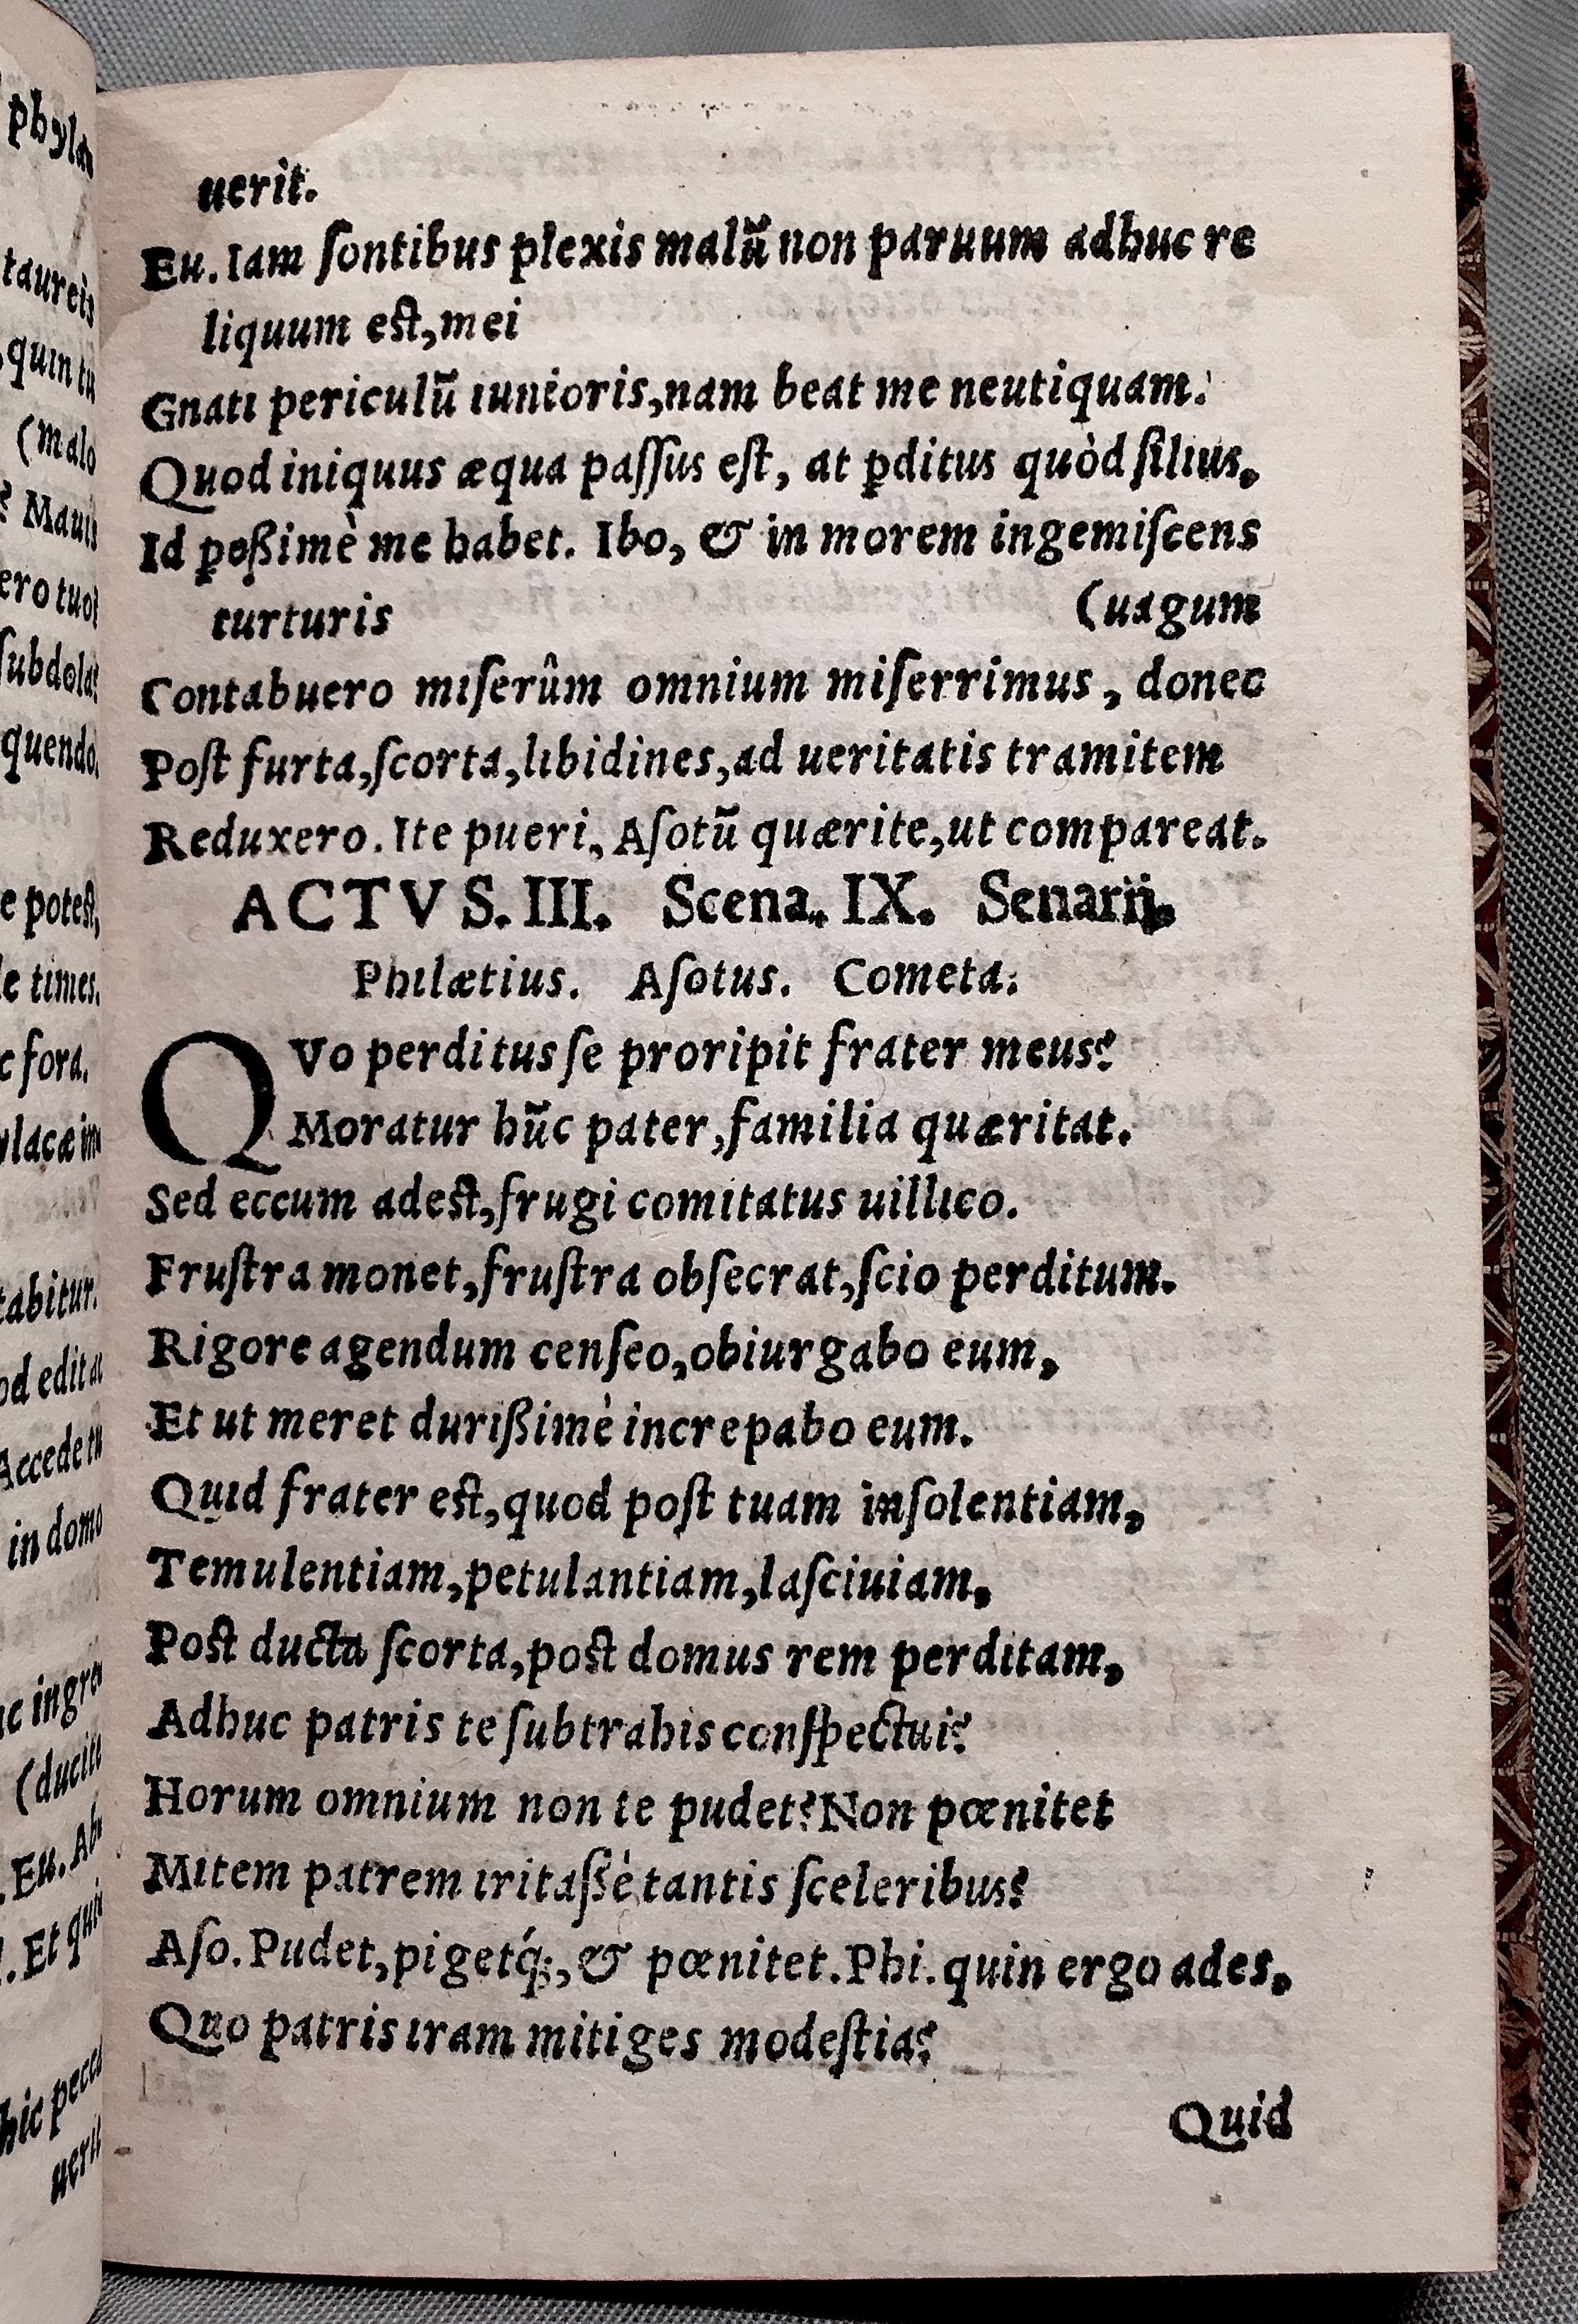 uerit.
Eu. Iam ſontibus plexis malũ non paruum adhuc re
liquum eſt, mei
Gnati periculũ iunioris, nam beat me neutiquam.
Quod iniquus æqua paſſus eſt, at ꝑditus quòd filius,
Id peßimè me habet. Ibo, & in morem ingemiſcens
turturis (uagum
Contabuero miſerûm omnium miſerrimus, donec
Poſt furta, ſcorta, libidines, ad ueritatis tramitem
Reduxero. Ite pueri, Aſotũ quærite, ut compareat.
ACTVS. III. Scena. IX. Senarij.
Philætius. Aſotus. Cometa.
QVo perditus ſe proripit frater meus?
Moratur hũc pater, familia quæritat.
Sed eccum adeſt, frugi comitatus uillico.
Fruſtra monet, fruſtra obſecrat, ſcio perditum.
Rigore agendum cenſeo, obiurgabo eum,
Et ut meret durißimè increpabo eum.
Quid frater eſt, quod poſt tuam inſolentiam,
Temulentiam, petulantiam, laſciuiam,
Poſt ducta ſcorta, poſt domus rem perditam,
Adhuc patris te ſubtrahis conſpectui?
Horum omnium non te pudet? Non pœnitet
Mitem patrem iritaſſè tantis ſceleribus?
Aſo. Pudet, pigetq́;, & pœnitet. Phi. quin ergo ades,
Quo patris iram mitiges modeſtia?
Quid
phylac
taureis
quin tu
(malo
? Mauis
ero tuos
ſubdolas
quendo.
e poteſt,
le times.
c fora.
ylacæ im
tabitur.
od edit ac
Accede tu
in domo
(ducite
. Eu. Ab
. Et quin
hic pecca
uerit